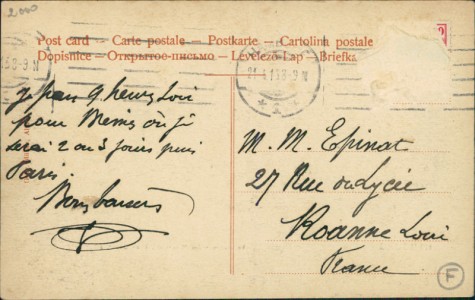 2000
Post card — Carte postale — Postkarte — Cartolina postale
Dopisnice — Открытое письмо — Levelező-Lap — Briefka
Je pars 9 heures
pour où je
serai 2 ou 3 jours puis
Paris.
Bons baisers
M. M. Epinat
27 Rue du Lycée
Roanne Loire
France
F